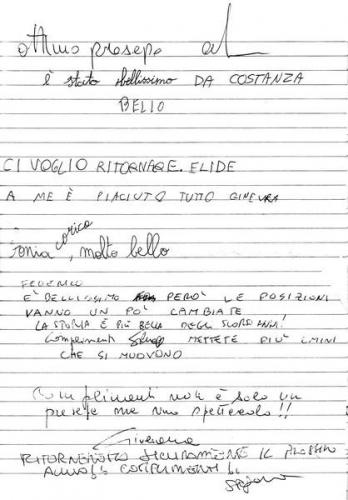 ottimo presepe
è stato bellissimo DA COSTANZA
BELLO
CI VOGLIO RITORNARE. ELIDE
A ME È PIACIUTO TUTTO GINEVRA
Sonia, molto bello
FEDERICO
È BELLISSIMO PERÒ LE POSIZIONI
VANNO UN PO' CAMBIATE
LA STORIA È PIÙ BELLA DEGLI SCORSI ANNI!
Complimenti METTETE PIÙ OMINI
CHE SI MUOVONO
Complimenti non è solo un
presepe ma uno spettacolo!!
Giovanna
RITORNEREMO SICURAMENTE IL PROSSIMO
ANNO COMPLIMENTI